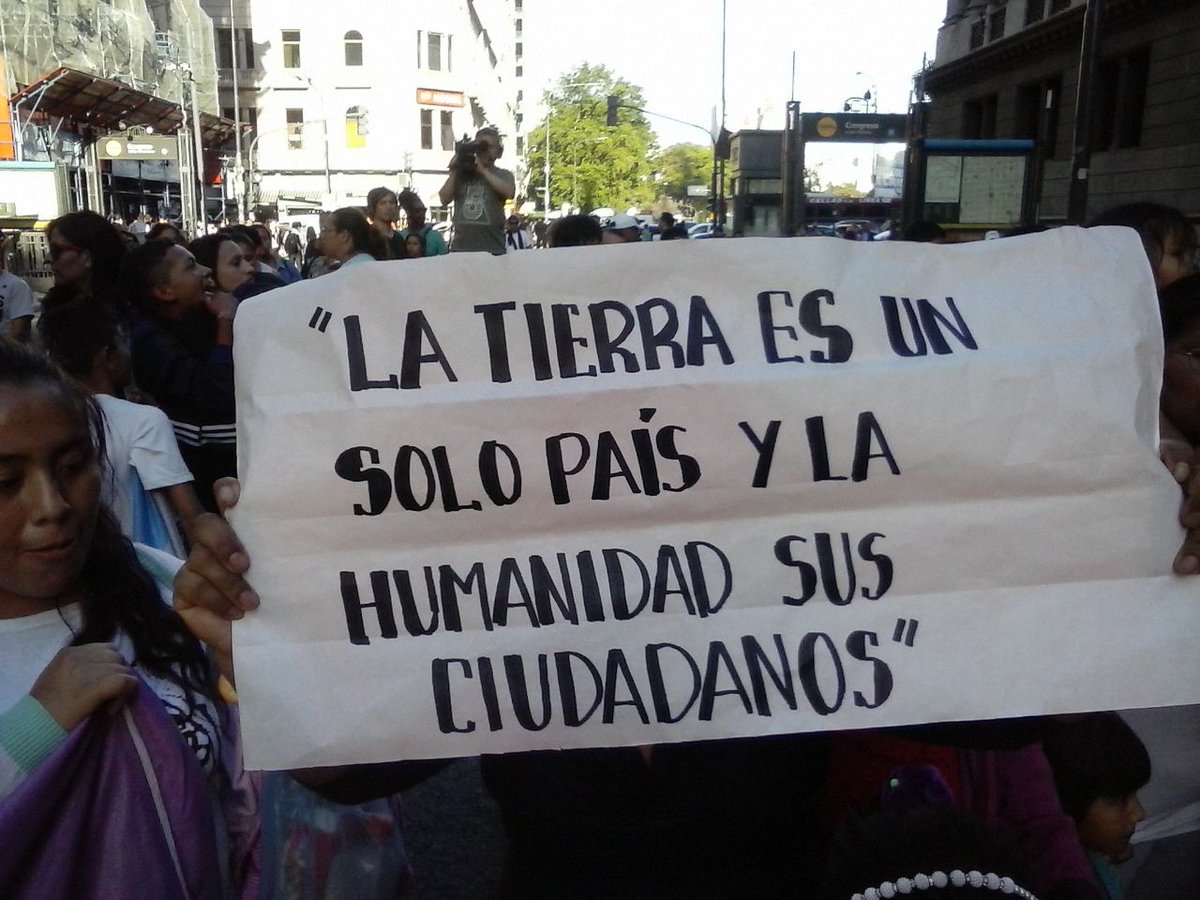 Congreso
"LA TIERRA ES UN
SOLO PAÍS Y LA
HUMANIDAD SUS
CIUDADANOS"